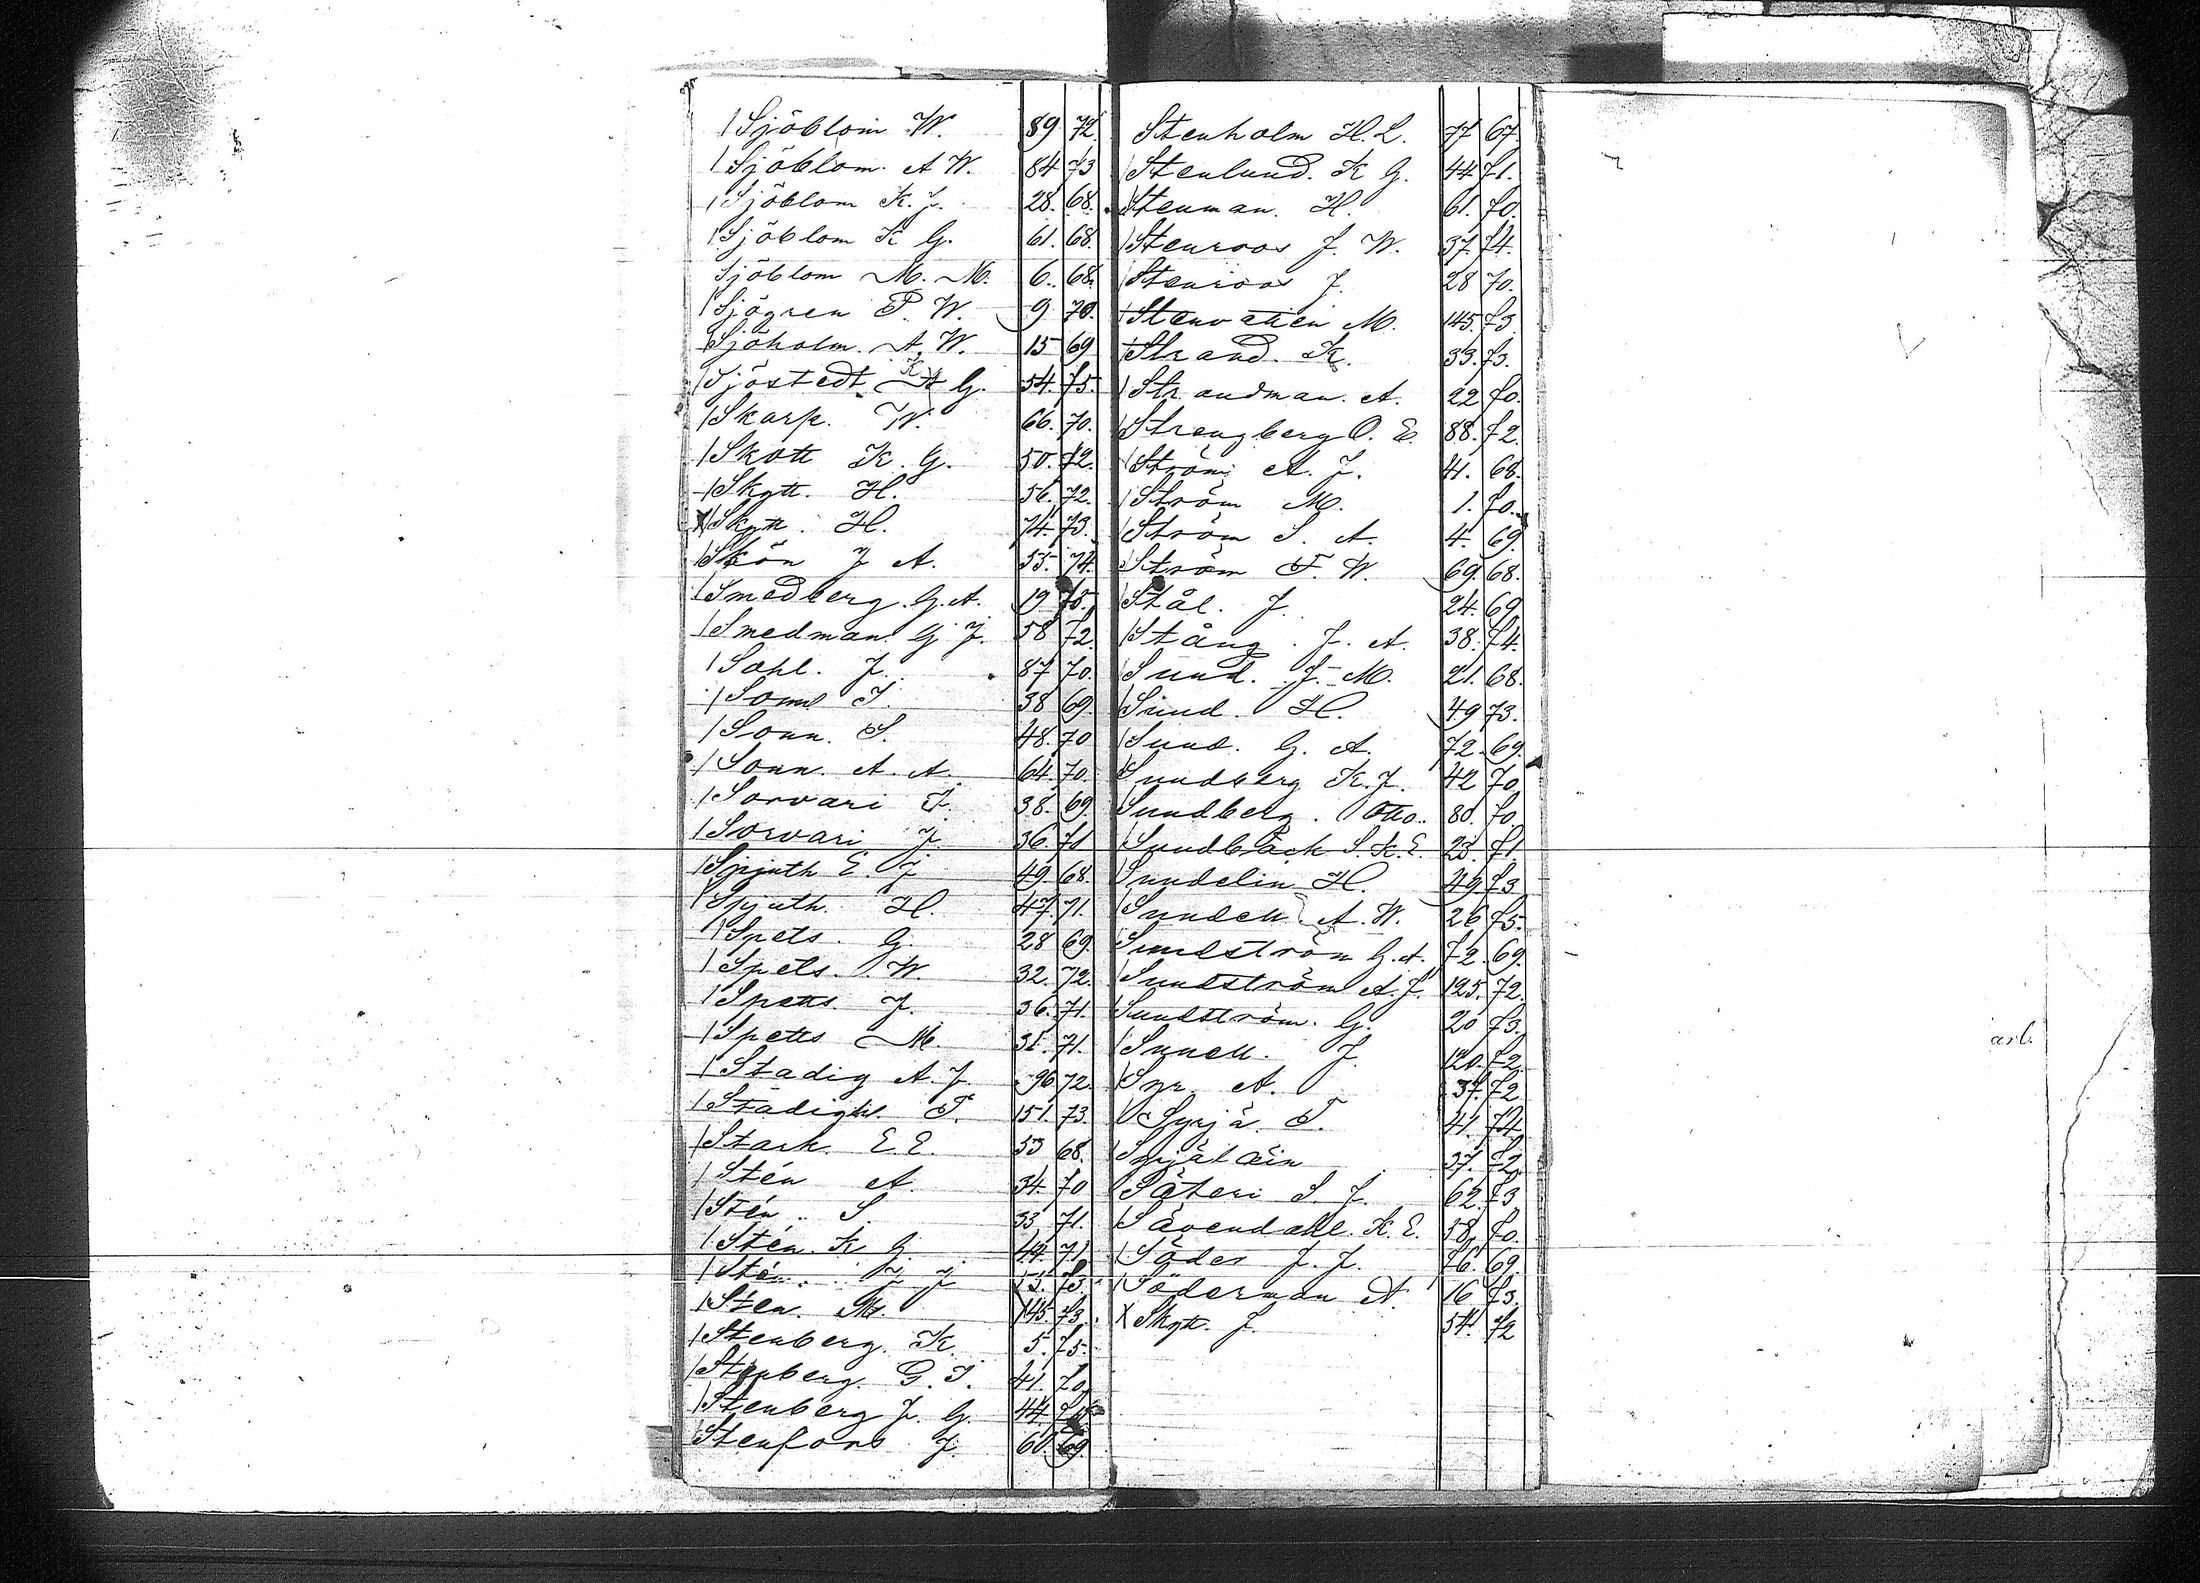 / Sjöblom W. 89. 72.
/ Sjöblom. A W. 84 73
/ Sjöblom K. J. 28. 68.
/ Sjöblom K G. 61. 68.
Sjöblom M. M. 6. 68.
/ Sjögren P. W. 9 70.
Sjöholm. A. W. 15 69
/ Sjöstedt K G. 54. 75.
/ Skarp. W. 66. 70.
/ Skott K. G. 50. 72.
/ Skytt. H. 56. 72.
X/ Skytt. H. 74. 73.
/ Skön J A. 55. 74.
/ Smedberg. G. A. 19 75.
/ Smedman G J. 58 72.
/ Sohl. J. 87 70.
/ Sonn J. 38 69.
/ Sonn. S. 48. 70
/ Sonn. A. A. 64. 70.
/ Sorvari F. 38. 69.
/ Sorvari J. 36. 71
/ Spjuth E. J 49. 68.
/ Spjuth. H. 47. 71.
/ Spets. G. 28 69.
/ Spets. W. 32. 72.
/ Spetts. J. 36. 71.
/ Spetts M. 31. 71.
/ Stadig A. J. 96 72.
/ Stadigh F. 151. 73.
/ Stark. E. E. 53 68.
/ Stén A. 34. 70
/ Stén.. S. 33 71.
/ Stén. K G. 44. 71
/ Stén. J J 73.
/ Sten. M. 145. 73.
/ Stenberg. K. 5. 75.
/ Stenberg. G. J. 41. 70.
/ Stenberg J. G. 44.
/ Stenfors J. 60. 69.
Stenholm H. L. 77 67.
/ Stenlund. K G. 44 71.
/ Stenman. H. 61. 70.
/ Stenroos J. W. 37. 74.
/ Stenroos J. 28 70.
/ Stenvallen M. 145. 73.
/ Strand. K. 33. 73.
/ Strandman. A. 22 70.
/ Strengberg O. E. 88. 72.
/ Ström A. J. 41. 68.
/ Ström M. 1. 70.
/ Ström S. A. 4. 69.
/ Ström F. W. 69. 68.
/ Stål. J. 24. 69.
/ Stång. J. A. 38. 74.
/ Sund. J. M. 21. 68.
/ Sund. H. 49 73.
/ Sund. G. A. 72. 69.
/ Sundberg K. J. 42 70.
Sundberg. Otto. 80. 70.
/ Sundbäck S. K. E. 23. 71.
/ Sundelin H. 49 73
/ Sundell A. W. 26 75.
Sundström G. A. 72. 69.
/ Sundström A. J. 125. 72.
Sundström. G. 20 73.
/ Sunell. J. 120. 72.
/ Syr. A. 37. 72
/ Syrjä. F. 41. 72
Syrjäläin 37. 72.
/ Säteri S. J. 62. 73
/ Sävendahl. K. E. 58. 70.
/ Söder J. J. 76. 69.
/ Söderman A. 16 73.
X Skytt. J. 54. 72
arb.